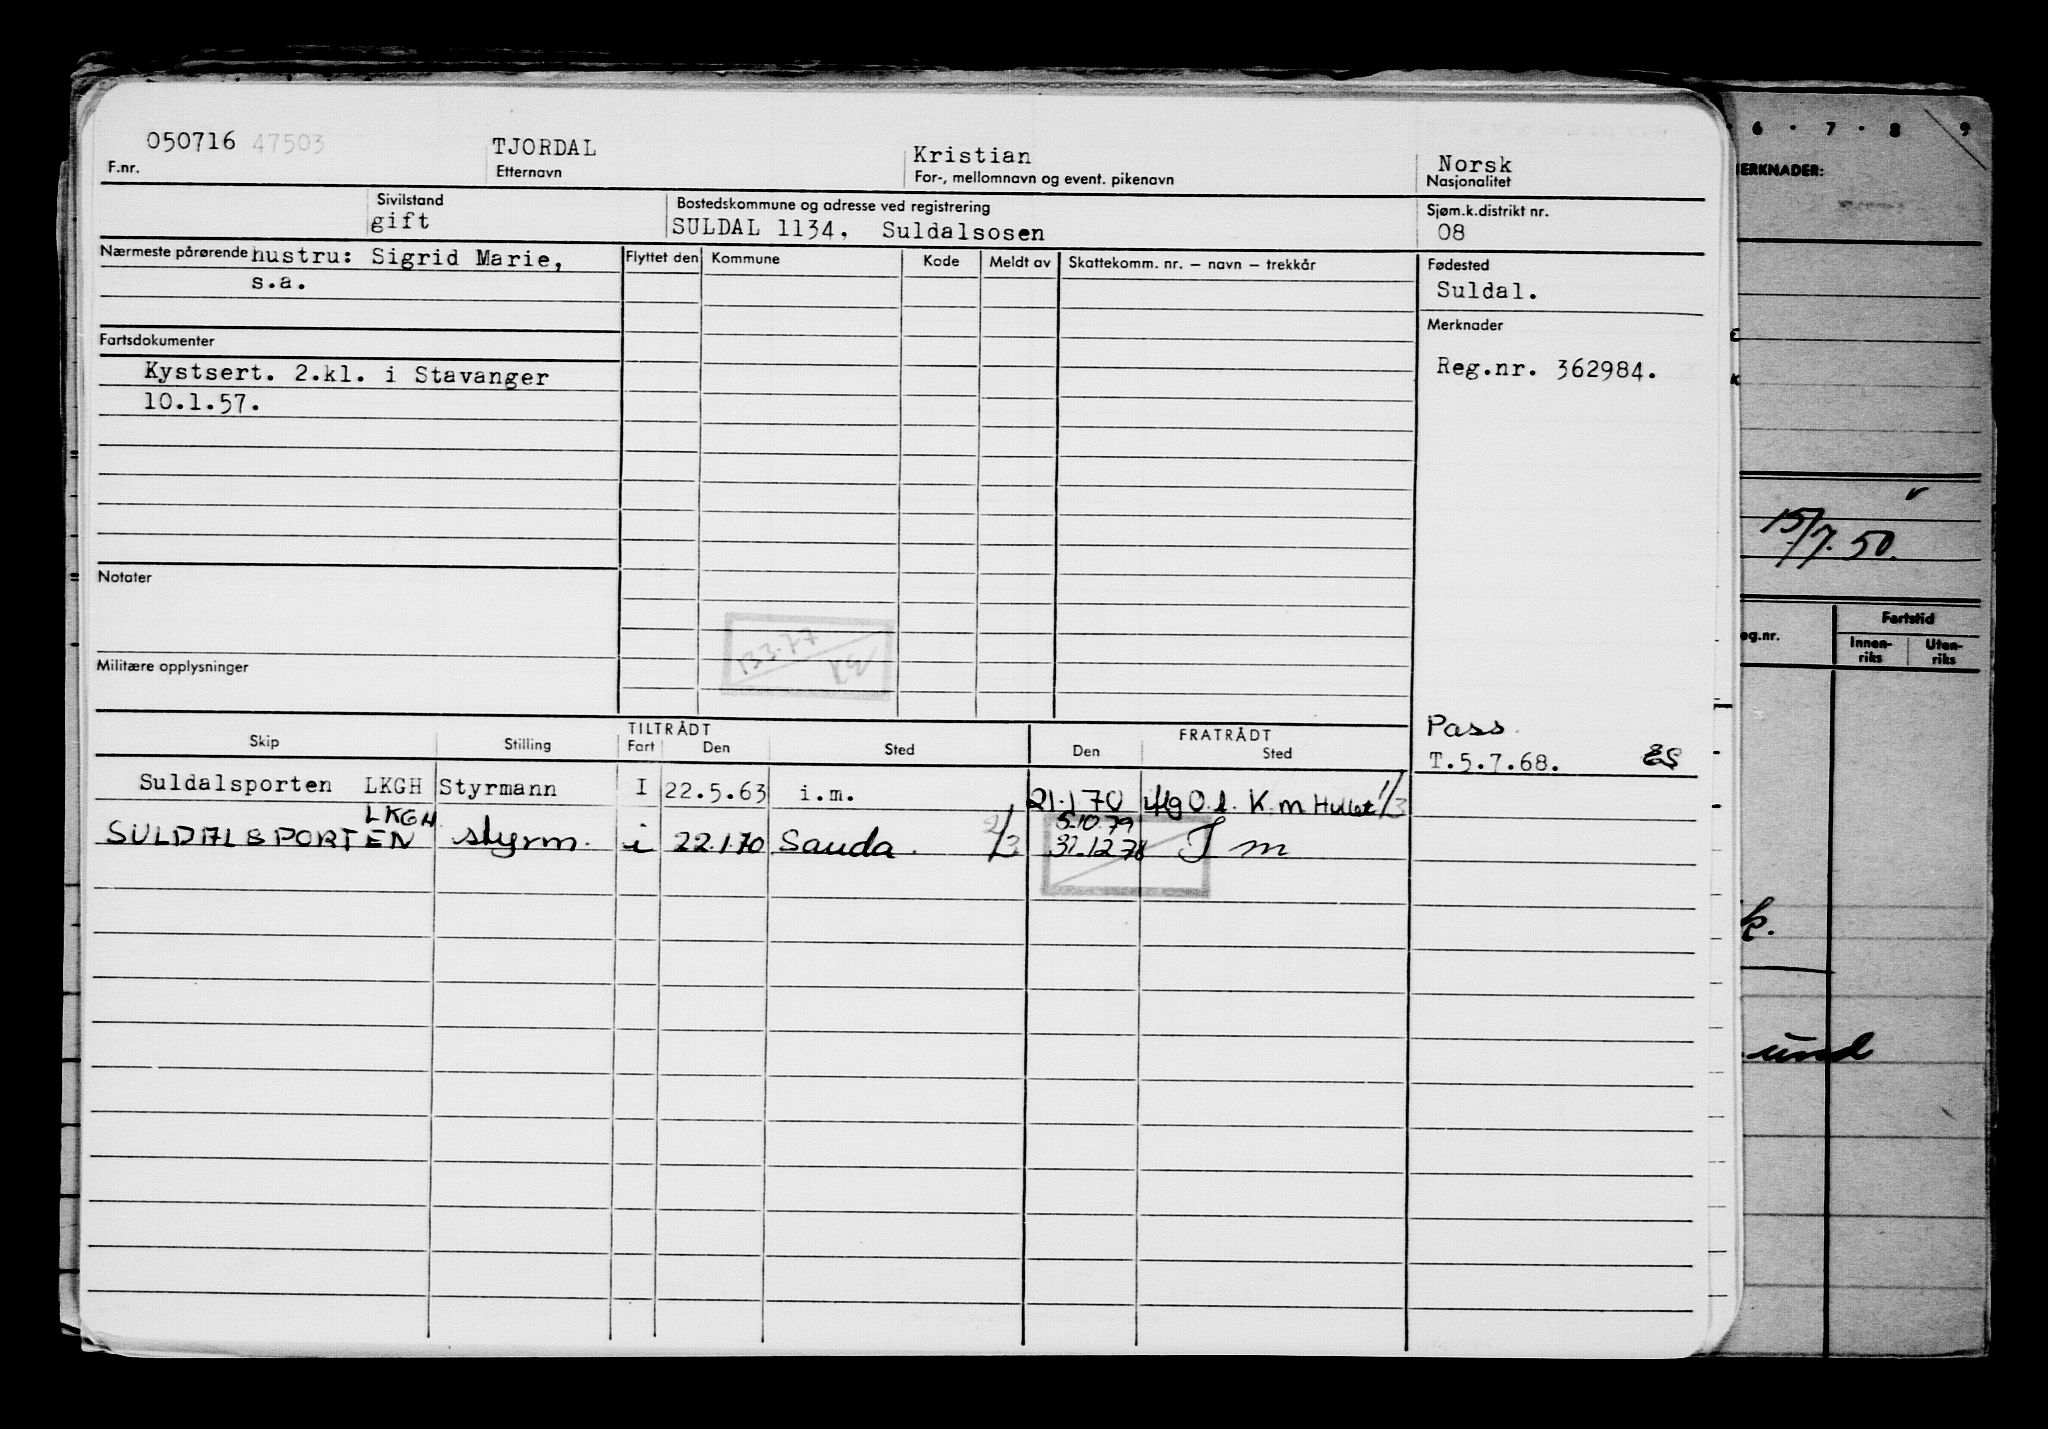 050716 47503 TJORDAL Kristian Norsk
F.nr. Etternavn For-, mellomnavn og event. pikenavn Nasjonalitet
Sivilstand Bostedskommune og adresse ved registrering Sjøm.k.distrikt nr.
gift SULDAL 1134, Suldalsosen 08
Nærmeste pårørende hustru: Sigrid Marie,
s.a.
Flyttet den Kommune Kode Meldt av Skattekomm. nr. – navn – trekkår
Fødested
Suldal.
Merknader
Reg.nr. 362984.
Fartsdokumenter
Kystsert. 2.kl. i Stavanger
10.1.57.
Notater
Militære opplysninger
Pass.
T.5.7.68. ES
TILTRÅDT FRATRÅDT
Skip Stilling Fart Den Sted Den Sted
Suldalsporten LKGH Styrmann I 22.5.63 i.m. 21.1 70 iflg O.l. K.m 1/3
LKGH
SULDALSPORTEN styrm. i 22.1.70 Sauda. 2/3
5.10.79
31.12 78 I m
6 · 7 · 8 9
MERKNADER:
15/7.50.
eg.nr. Fartstid
Innen-
riks
Uten-
riks
k.
und